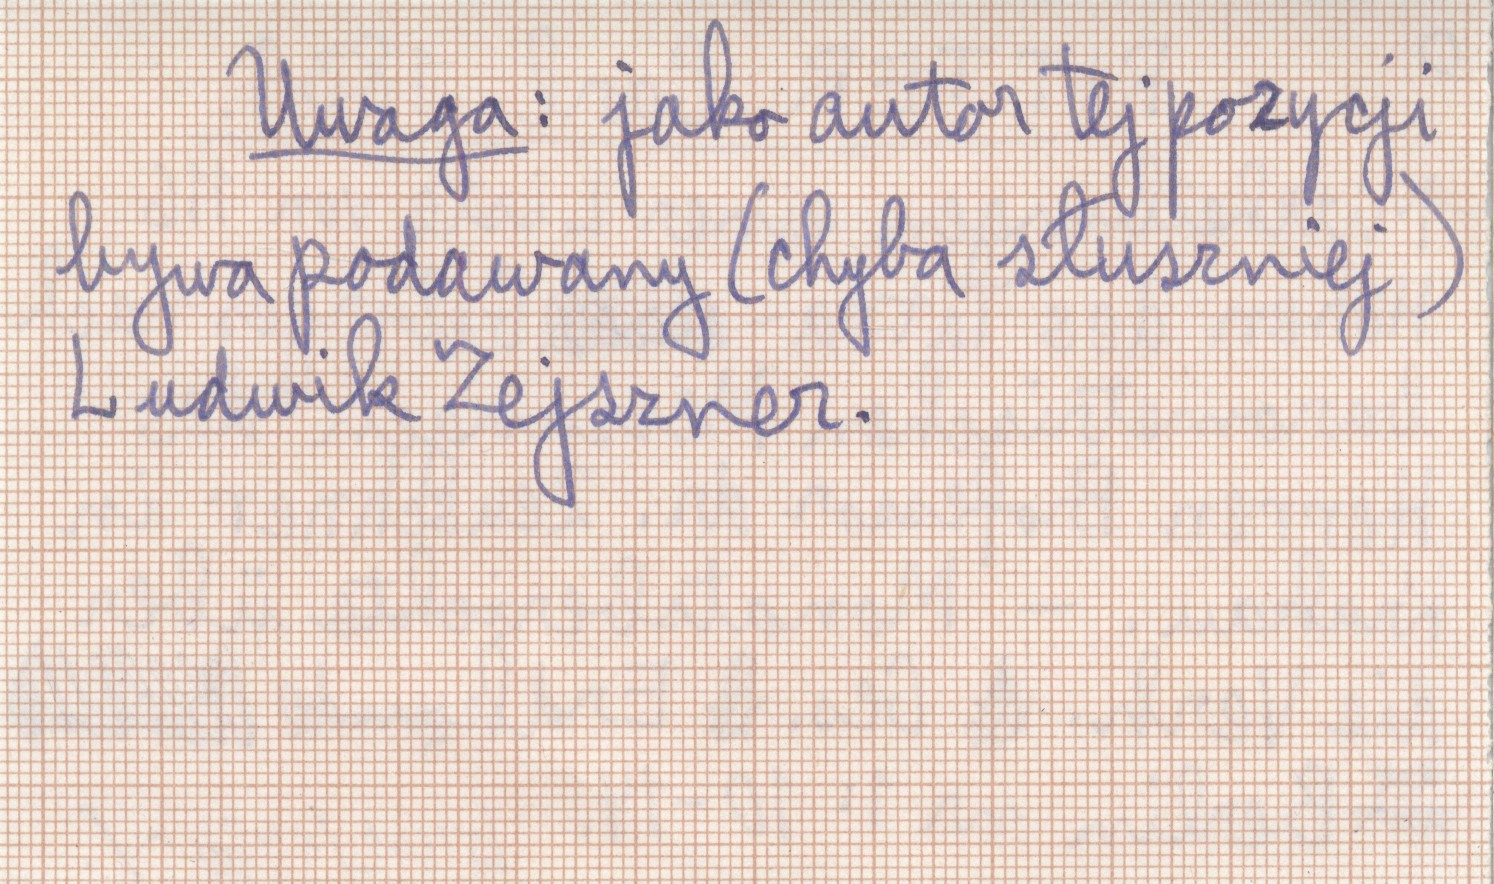 Uwaga: jako autor tej pozycji
bywa podawany (chyba słuszniej)
Ludwik Zejszner.